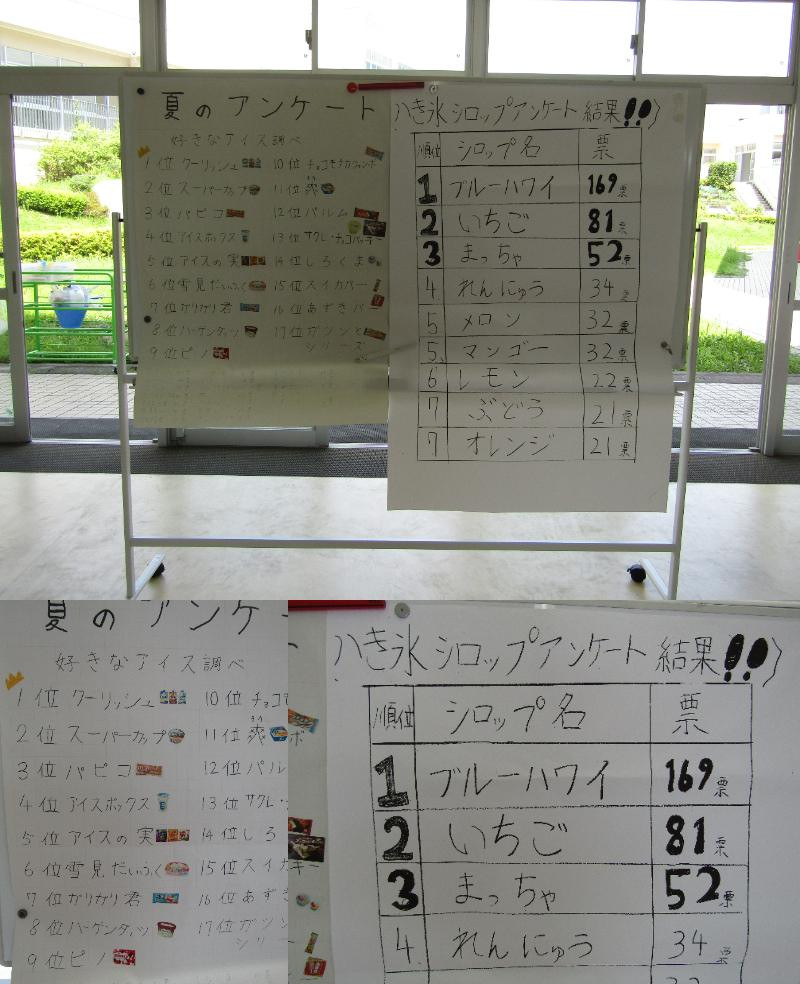 夏のアンケート
好きなアイス調べ
1位 クーリッシュ
2位 スーパーカップ
3位 パピコ
4位 アイスボックス
5位 アイスの実
6位 雪見だいふく
7位 ガリガリ君
8位 ハーゲンダッツ
9位 ピノ
10位 チョコモナカジャンボ
11位 爽
12位 パルム
13位 サクレ・チョコバッキー
14位 しろくま
15位 スイカバー
16位 あずきバー
17位 ガツンと
シリーズ
き氷シロップアンケート 結果!!
順位 シロップ名 票
1 ブルーハワイ 169票
2 いちご 81票
3 まっちゃ 52票
4 れんにゅう 34票
5 メロン 32票
5 マンゴー 32票
6 レモン 22票
7 ぶどう 21票
7 オレンジ 21票
夏のアンケ
好きなアイス調べ
1位 クーリッシュ
2位 スーパーカップ
3位 パピコ
4位 アイスボックス
5位 アイスの実
6位 雪見だいふく
7位 ガリガリ君
8位 ハーゲンダッツ
9位 ピノ
10位 チョコモ
11位 爽
12位 パル
13位 サクレ・
14位 しろ
15位 スイ
16位 あず
17位 ガツン
シリ
き氷シロップアンケート 結果!!
順位 シロップ名 票
1 ブルーハワイ 169票
2 いちご 81票
3 まっちゃ 52票
4 れんにゅう 34票